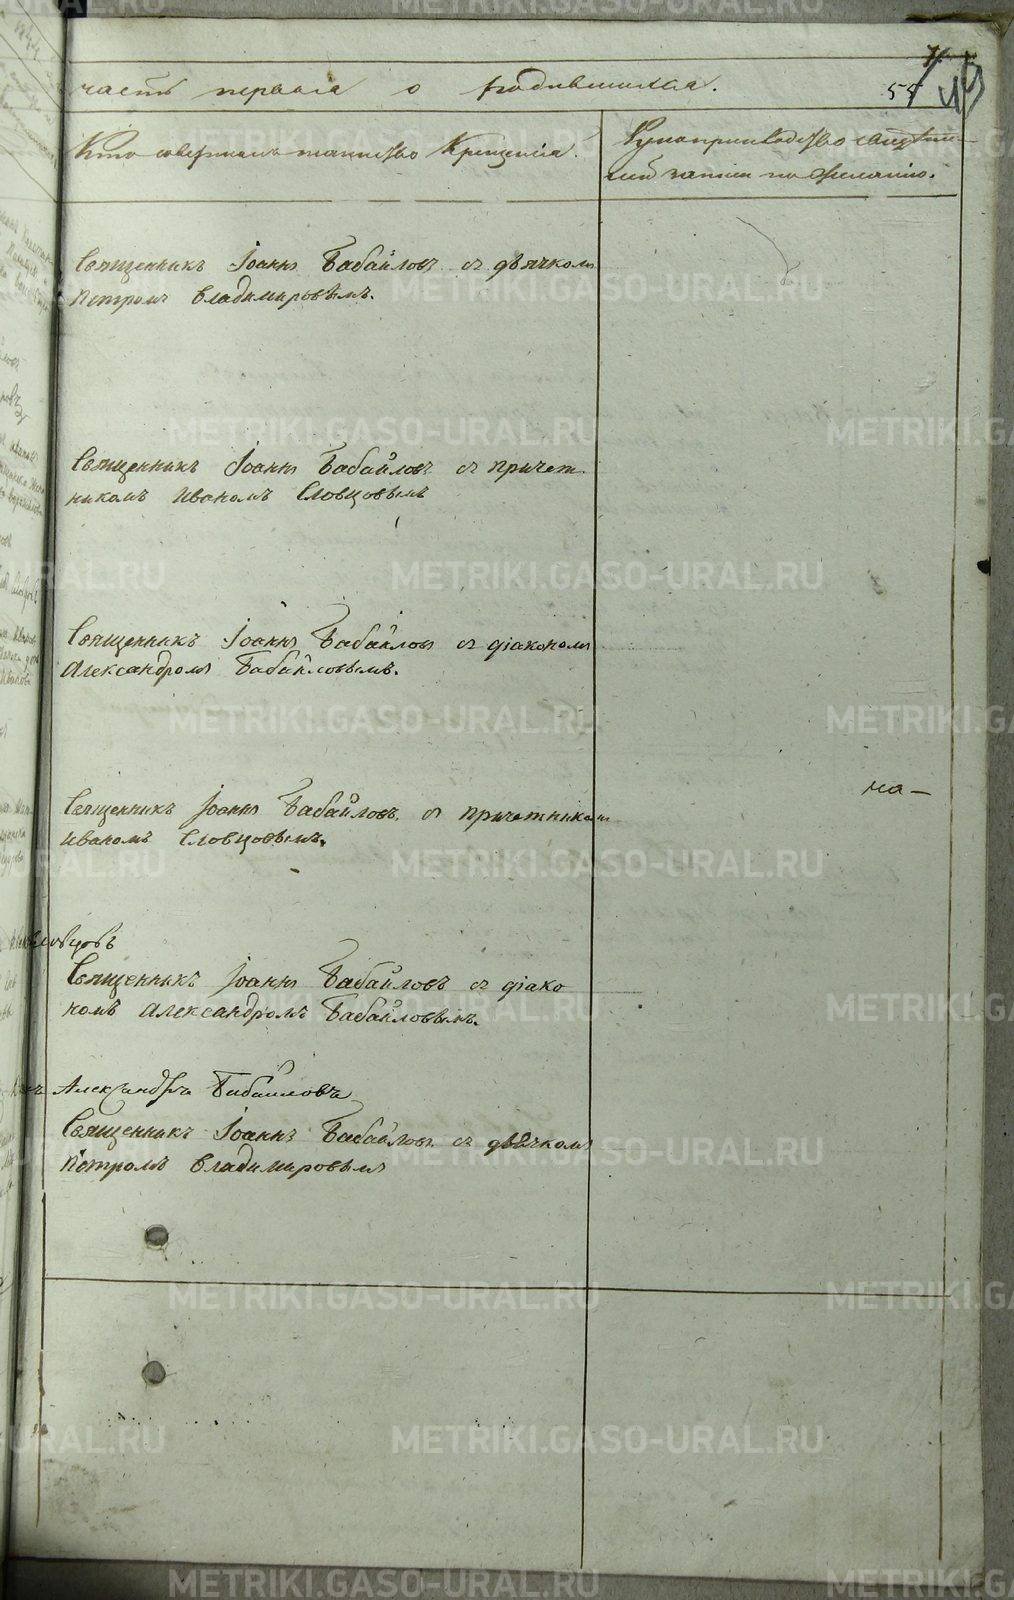 часть первая о родившихся.
55
Кто совершалъ таинство Крещенія.
Рукоприкладство свидѣте-
лей записи по желанію.
Священникъ Іоаннъ Бабайловъ съ дьячкомъ
Петромъ Владимировымъ.
Священникъ Іоаннъ Бабайловъ съ причет
никомъ Иваномъ Словцовымъ
Священникъ Іоаннъ Бабайловъ съ діакономъ
Александромъ Бабайловымъ.
Священникъ Іоаннъ Бабайловъ съ причетникомъ
Иваномъ Словцовымъ.
на-
Словцовъ
Священникъ Іоаннъ Бабайловъ съ діако
номъ Александромъ Бабайловымъ.
Александръ Бабайловъ
Священникъ Іоаннъ Бабайловъ съ дьячкомъ
Петромъ Владимировымъ
METRIKI.GASO-URAL.RU